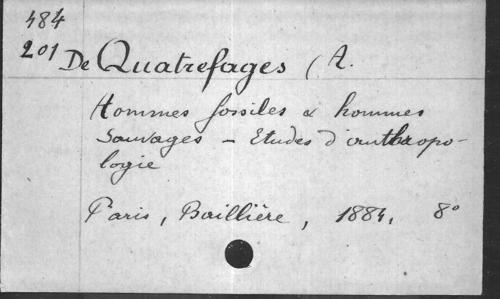 484
201 De Quatrefages (A.
Hommes fossiles & hommes
sauvages – Etudes d'anthropo-
logie
Paris, Baillière, 1884, 8°